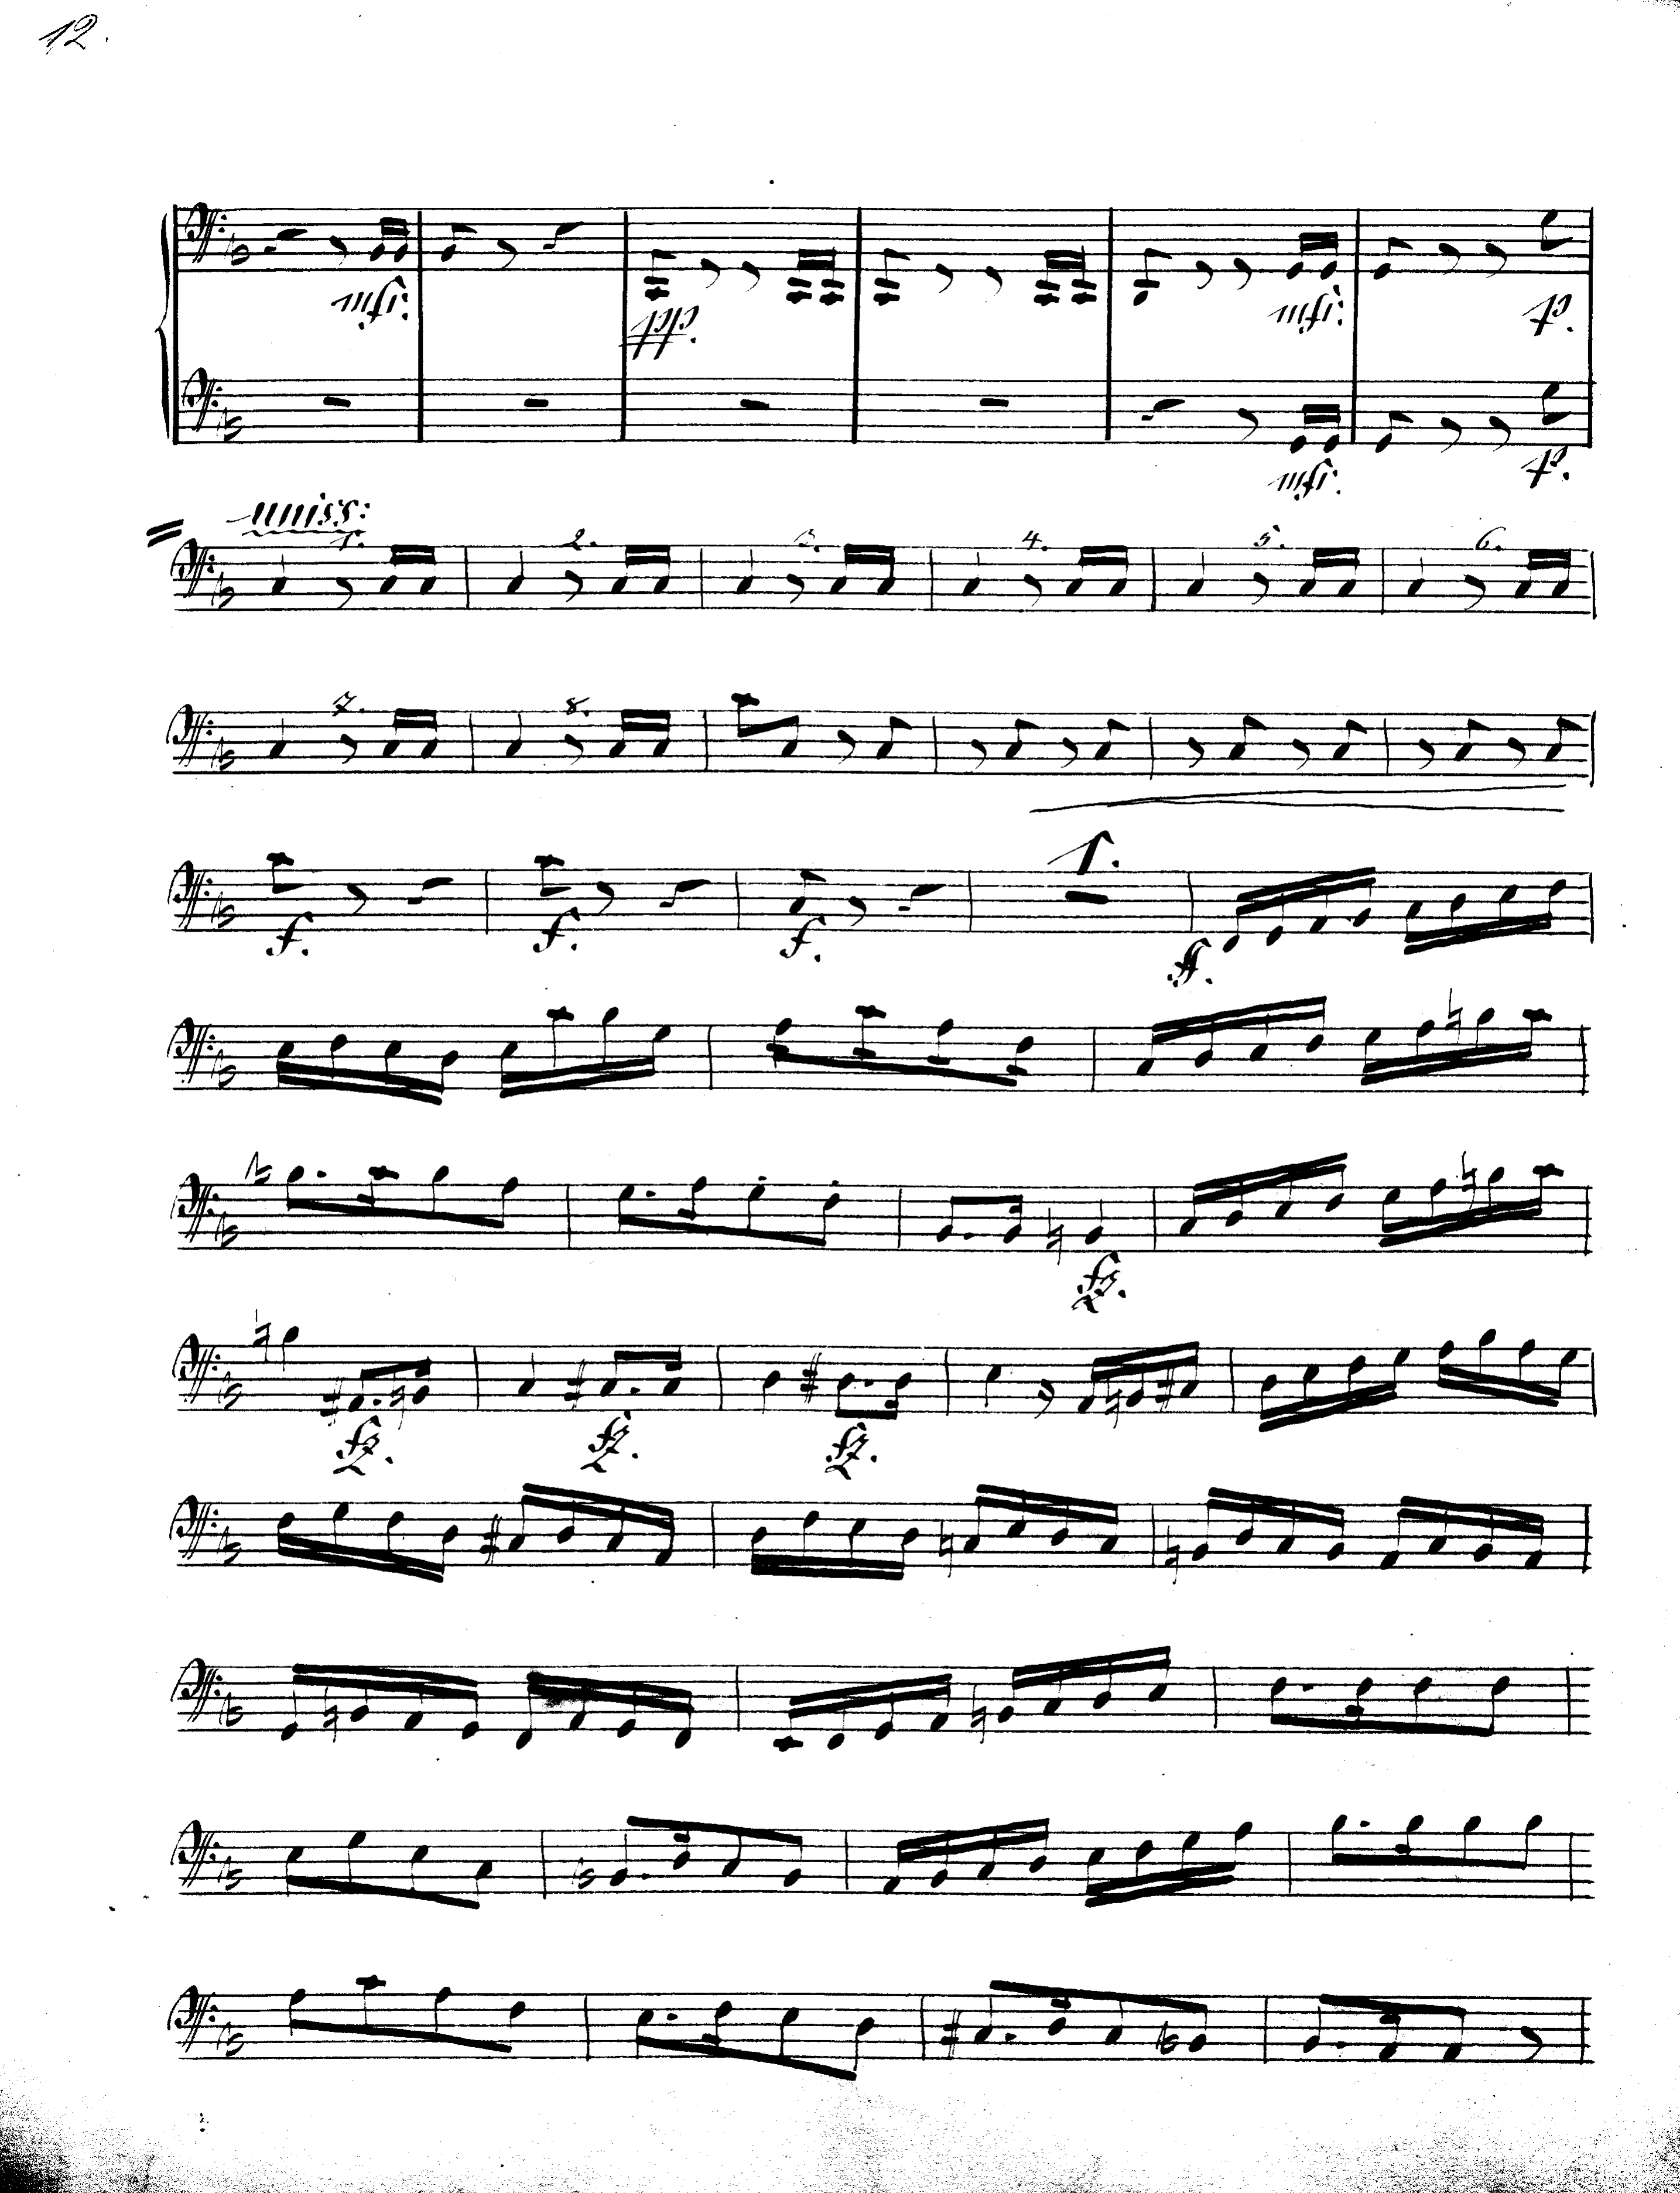 12.
mf:
pp. mf: p.
mf. p.
uniss:
1. 2. 3. 4. 5. 6.
7. 8.
1.
f. f. f. ff.
fz.
fz. fz. fz.